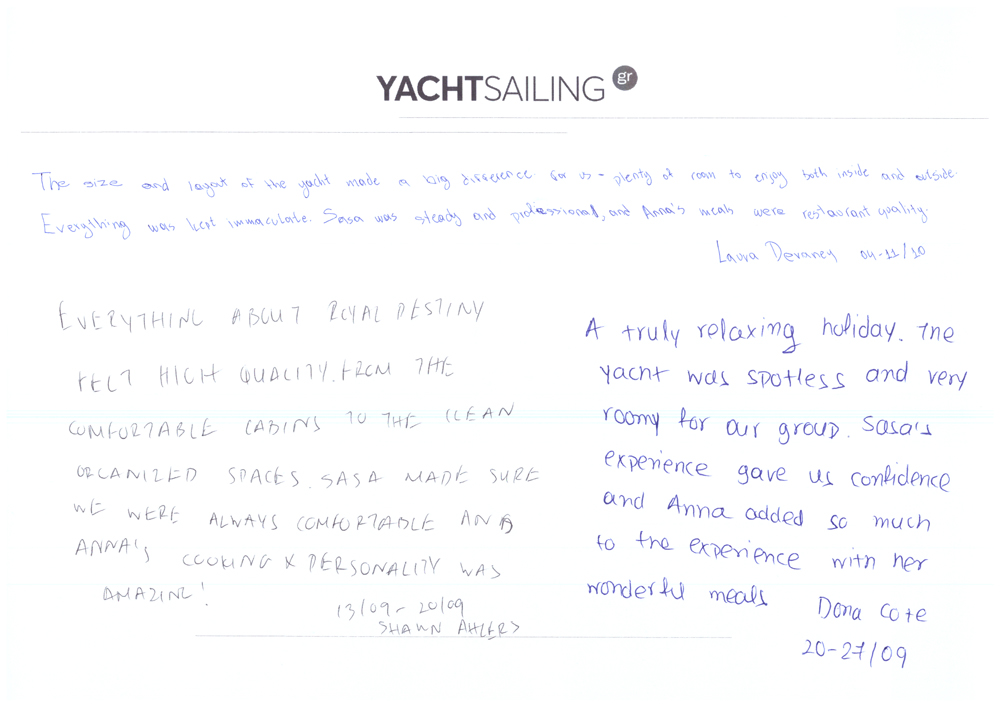 YACHTSAILING gr
The size and layout of the yacht made a big difference for us - plenty of room to enjoy both inside and outside.
Everything was kept immaculate. Sasa was steady and professional, and Anna's meals were restaurant quality.
Laura Devaney 04-11/10
EVERYTHING ABOUT ROYAL DESTINY
FELT HIGH QUALITY. FROM THE
COMFORTABLE CABINS TO THE CLEAN
ORGANIZED SPACES. SASA MADE SURE
WE WERE ALWAYS COMFORTABLE AND
ANNA'S COOKING & PERSONALITY WAS
AMAZING!
13/09 - 20/09
SHAWN AHLERS
A truly relaxing holiday. The
yacht was spotless and very
roomy for our group. Sasa's
experience gave us confidence
and Anna added so much
to the experience with her
wonderful meals
Dona Cote
20-27/09